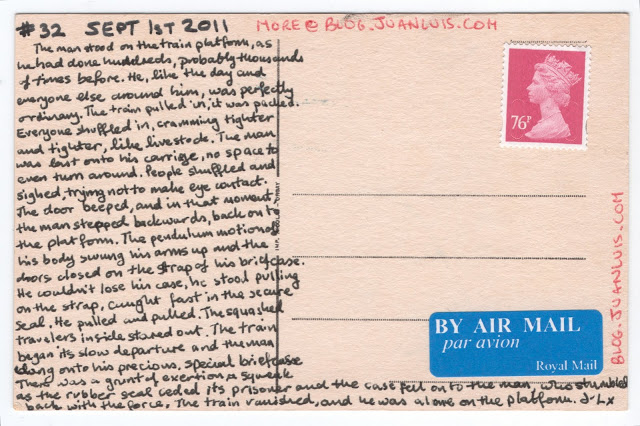 #32 SEPT 1ST 2011
MORE @ BLOG.JUANLUIS.COM
The man stood on the train platform, as
he had done hundreds, probably thousands
of times before. He, like the day and
everyone else around him, was perfectly
ordinary. The train pulled in, it was packed.
Everyone shuffled in, cramming tighter
and tighter, like livestock. The man
was last onto his carriage, no space to
even turn around. People shuffled and
sighed, trying not to make eye contact.
The door beeped, and in that moment
the man stepped backwards, back on to
the platform. The pendulum motion of
his body swung his arms up and the
doors closed on the strap of his briefcase.
He couldn't lose his case, he stood pulling
on the strap, caught fast in the secure
seal. He pulled and pulled. The squashed
travelers inside stared out. The train
began its slow departure and the man
clung onto his precious, special briefcase
There was a grunt of exertion, a squeak
as the rubber seal ceded its prisoner and the case fell on to the man, who stumbled
back with the force. The train vanished, and he was alone on the platform. J-L x
76P
BLOG.JUANLUIS.COM
BY AIR MAIL
par avion
Royal Mail